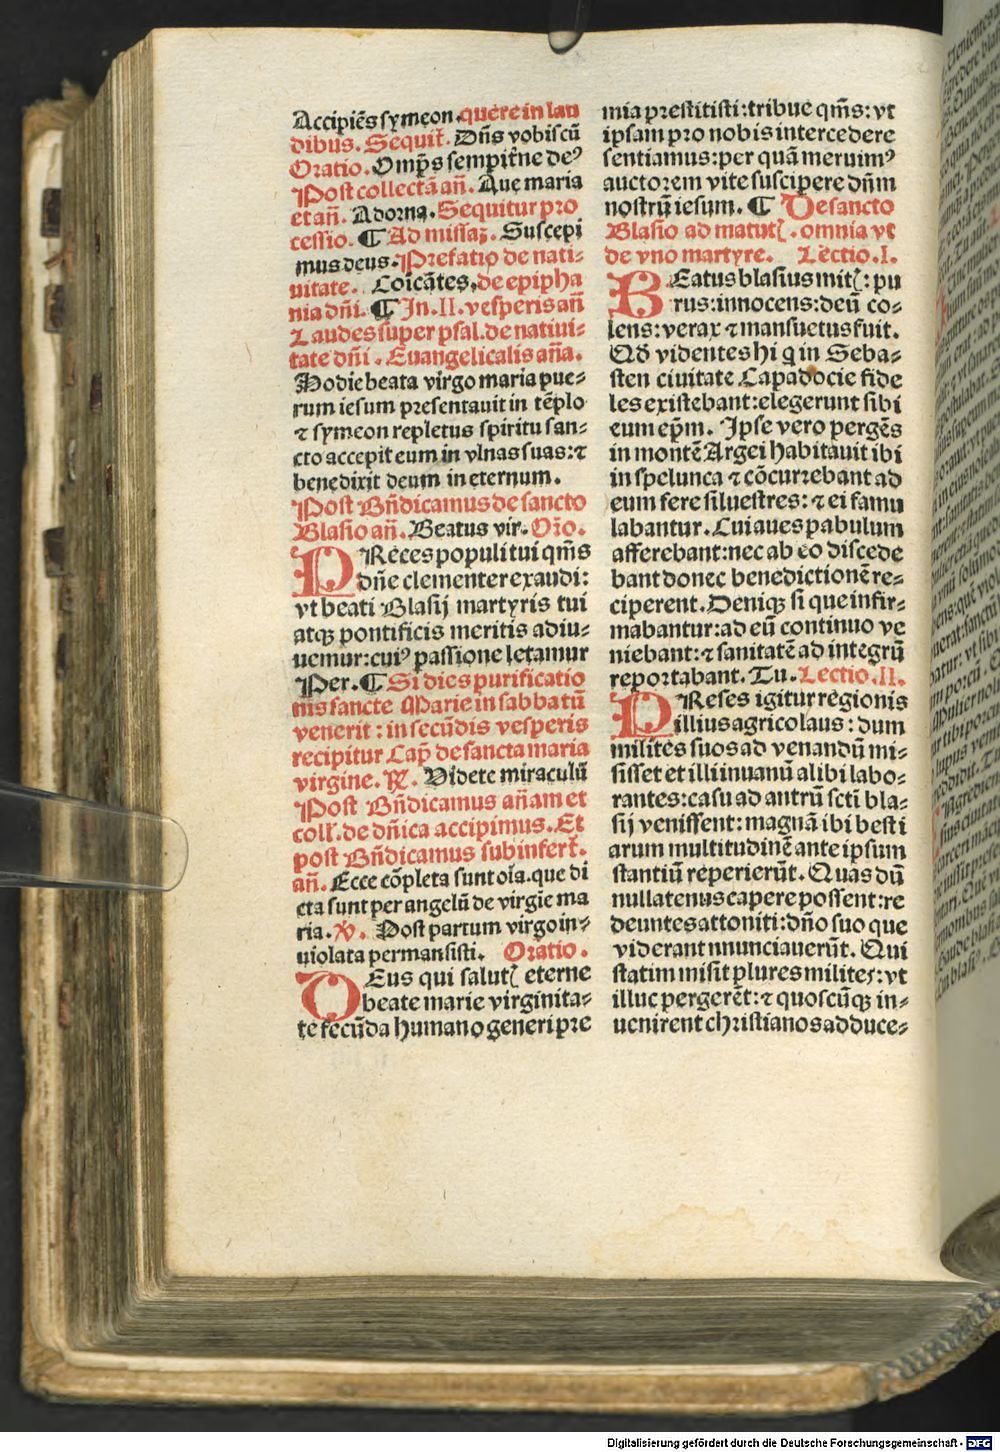 Accipiẽs symeon. quere in lau
dibus. Sequit̃. Dñs vobiscũ
Oratio. Omp̃s sempit̃ne deꝰ
Post collectã añ. Aue maria
et añ. Adorna. Sequitur pro
cessio. ¶ Ad missaʒ. Suscepi
mus deus. Prefatio de nati⸗
uitate. Cõicãtes. de epipha
nia dñi. ¶ In .II. vesperis añ
Laudes super psal. de natiui⸗
tate dñi. Euangelicalis aña.
Hodie beata virgo maria pue⸗
rum iesum presentauit in tẽplo
⁊ symeon repletus spiritu san⸗
cto accepit eum in vlnas suas: ⁊
benedixit deum in eternum.
Post Bñdicamus de sancto
Blasio añ. Beatus vir. Oṙo.
PReces populi tui qm̃s
dñe clementer exaudi:
vt beati Blasij martyris tui
atqꝫ pontificis meritis adiu⸗
uemur: cuiꝰ passione letamur
Per. ¶ Si dies purificatio
nis sancte Marie in sabbatũ
venerit: in secũdis vesperis
recipitur Cap̃ de sancta maria
virgine. ℟. Videte miraculũ
Post Bñdicamus añam et
coll̃. de dñica accipimus. Et
post Bñdicamus subinfert̃.
añ. Ecce cõpleta sunt oĩa. que di
cta sunt per angelũ de virgĩe ma
ria. ℣. Post partum virgo in⸗
uiolata permansisti. Oratio.
DEus qui salutꝭ eterne
beate marie virginita⸗
te fecũda humano generi pre
mia prestitisti: tribue qm̃s: vt
ipsam pro nobis intercedere
sentiamus: per quã meruimꝰ
auctorem vite suscipere dñm
nostrũ iesum. ¶ De sancto
Blasio ad matutꝭ. omnia vt
de vno martyre. Lectio .I.
BEatus blasius mitꝭ: pu
rus: innocens: deũ co⸗
lens: verax ⁊ mansuetus fuit.
Qđ videntes hi q̇ in Seba⸗
sten ciuitate Capadocie fide
les existebant: elegerunt sibi
eum ep̃m. Ipse vero pergẽs
in montẽ Argei habitauit ibi
in spelunca ⁊ cõcurrebant ad
eum fere siluestres: ⁊ ei famu
labantur. Cui aues pabulum
afferebant: nec ab eo discede
bant donec benedictionẽ re⸗
ciperent. Deniqꝫ si que infir⸗
mabantur: ad eũ continuo ve
niebant: ⁊ sanitatẽ ad integrũ
reportabant. Tu. Lectio .II.
PReses igitur regionis
illius agricolaus: dum
milites suos ad venandũ mi⸗
sisset et illi in uanũ alibi labo⸗
rantes: casu ad antrũ scti bla⸗
sij venissent: magnã ibi besti
arum multitudinẽ ante ipsum
stantiũ reperierũt. Quas dũ
nullatenus capere possent: re
deuntes attoniti: dño suo que
viderant nnunciauerũt. Qui
statim misit plures milites: vt
illuc pergerẽt: ⁊ quoscũqꝫ in⸗
uenirent christianos adduce⸗
Digitalisierung gefördert durch die Deutsche Forschungsgemeinschaft - DFG